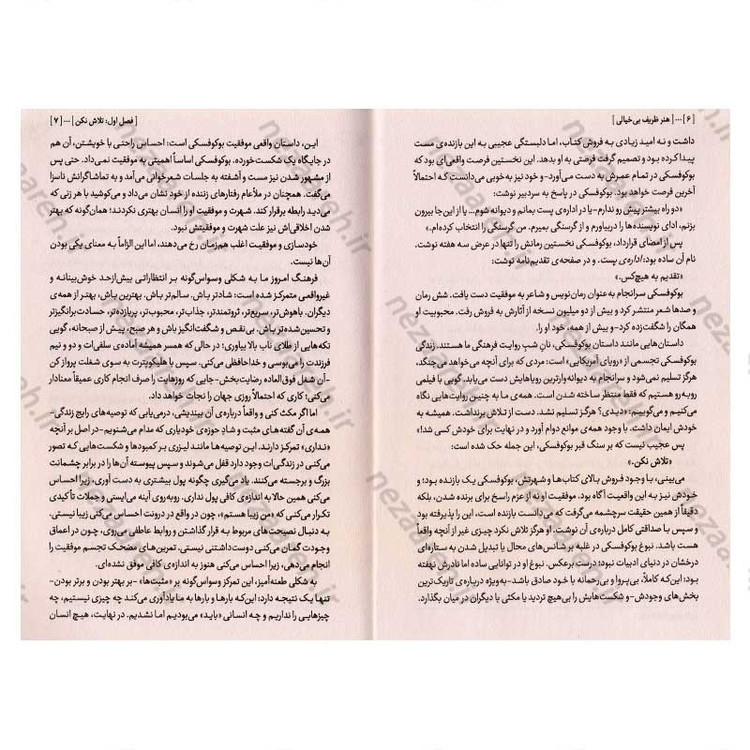 [ ۶ ] --- | هنر ظریف بی‌خیالی |
داشت و نه امید زیادی به فروش کتاب، اما دلبستگی عجیبی به این بازنده‌ی مست
پیدا کرده بود و تصمیم گرفت فرصتی به او بدهد. این نخستین فرصت واقعی‌ای بود که
بوکوفسکی در تمام عمرش به دست می‌آورد- و خود نیز به‌خوبی می‌دانست که احتمالاً
آخرین فرصت خواهد بود. بوکوفسکی در پاسخ به سردبیر نوشت:
«دو راه بیشتر پیش رو ندارم- یا در اداره‌ی پست بمانم و دیوانه شوم... یا از این‌جا بیرون
بزنم، ادای نویسنده‌ها را دربیاورم و از گرسنگی بمیرم. من گرسنگی را انتخاب کرده‌ام.»
پس از امضای قرارداد، بوکوفسکی نخستین رمانش را تنها در عرض سه هفته نوشت.
نام آن ساده بود: اداره‌ی پست. و در صفحه‌ی تقدیم‌نامه نوشت:
«تقدیم به هیچ‌کس.»
بوکوفسکی سرانجام به‌عنوان رمان‌نویس و شاعر به موفقیت دست یافت. شش رمان
و صدها شعر منتشر کرد و بیش از دو میلیون نسخه از آثارش به فروش رفت. محبوبیت او
همگان را شگفت‌زده کرد- و بیش از همه، خود او را.
داستان‌هایی مانند داستان بوکوفسکی، نانِ شبِ روایت فرهنگی ما هستند. زندگی
بوکوفسکی تجسمی از «رویای آمریکایی» است: مردی که برای آنچه می‌خواهد می‌جنگد،
هرگز تسلیم نمی‌شود و سرانجام به دیوانه‌وارترین رویاهایش دست می‌یابد. گویی با فیلمی
روبه‌رو هستیم که فقط منتظر ساخته شدن است. همه‌ی ما به چنین روایت‌هایی نگاه
می‌کنیم و می‌گوییم: «دیدی؟ هرگز تسلیم نشد. دست از تلاش برنداشت. همیشه به
خودش ایمان داشت. با وجود همه‌ی موانع دوام آورد و در نهایت برای خودش کسی شد!»
پس عجیب نیست که بر سنگ قبر بوکوفسکی، این جمله حک شده است:
«تلاش نکن.»
می‌بینی، با وجود فروش بالای کتاب‌ها و شهرتش، بوکوفسکی یک بازنده بود؛ و
خودش نیز به این واقعیت آگاه بود. موفقیت او نه از عزم راسخ برای برنده شدن، بلکه
دقیقاً از همین حقیقت سرچشمه می‌گرفت که می‌دانست بازنده است، این را پذیرفته بود
و سپس با صداقتی کامل درباره‌ی آن نوشت. او هرگز تلاش نکرد چیزی غیر از آنچه واقعاً
هست باشد. نبوغ بوکوفسکی در غلبه بر شانس‌های محال یا تبدیل شدن به ستاره‌ای
درخشان در دنیای ادبیات نبود؛ درست برعکس. نبوغ او در توانایی ساده اما نادرش نهفته
بود: این‌که کاملاً، بی‌پروا و بی‌رحمانه با خود صادق باشد- به‌ویژه درباره‌ی تاریک‌ترین
بخش‌های وجودش- و شکست‌هایش را بی‌هیچ تردید یا مکثی با دیگران در میان بگذارد.
| فصل اول: تلاش نکن | --- [ ۷ ]
این، داستان واقعی موفقیت بوکوفسکی است: احساس راحتی با خویشتن، آن هم
در جایگاه یک شکست‌خورده. بوکوفسکی اساساً اهمیتی به موفقیت نمی‌داد. حتی پس
از مشهور شدن نیز مست و آشفته به جلسات شعرخوانی می‌آمد و به تماشاگرانش ناسزا
می‌گفت. همچنان در ملأعام رفتارهای زننده از خود نشان می‌داد و می‌کوشید با هر زنی که
می‌دید رابطه برقرار کند. شهرت و موفقیت او را انسان بهتری نکردند؛ همان‌گونه که بهتر
شدن اخلاقی‌اش نیز علت شهرت و موفقیتش نبود.
خودسازی و موفقیت اغلب هم‌زمان رخ می‌دهند، اما این الزاماً به معنای یکی بودن
آن‌ها نیست.
فرهنگ امروز ما به شکلی وسواس‌گونه بر انتظاراتی بیش‌ازحد خوش‌بینانه و
غیرواقعی متمرکز شده است: شادتر باش. سالم‌تر باش. بهترین باش، بهتر از همه‌ی
دیگران. باهوش‌تر، سریع‌تر، ثروتمندتر، جذاب‌تر، محبوب‌تر، پربازده‌تر، حسادت‌برانگیزتر
و تحسین‌شده‌تر باش. بی‌نقص و شگفت‌انگیز باش و هر صبح، پیش از صبحانه، گویی
تکه‌هایی از طلای ناب بالا بیاوری؛ در حالی که همسر همیشه آماده‌ی سلفی‌ات و دو و نیم
فرزندت را می‌بوسی و خداحافظی می‌کنی. سپس با هلیکوپترت به سوی شغلت پرواز کن
-آن شغل فوق‌العاده رضایت‌بخش- جایی که روزهایت را صرف انجام کاری عمیقاً معنادار
می‌کنی؛ کاری که احتمالاً روزی جهان را نجات خواهد داد.
اما اگر مکث کنی و واقعاً درباره‌ی آن بیندیشی، درمی‌یابی که توصیه‌های رایج زندگی-
همه‌ی آن گفته‌های مثبت و شادِ حوزه‌ی خودیاری که مدام می‌شنویم- در اصل بر آنچه
«نداری» تمرکز دارند. این توصیه‌ها مانند لیزری بر کمبودها و شکست‌هایی که تصور
می‌کنی در زندگی‌ات وجود دارد قفل می‌شوند و سپس پیوسته آن‌ها را در برابر چشمانت
بزرگ و برجسته می‌کنند. یاد می‌گیری چگونه پول بیشتری به دست آوری، زیرا احساس
می‌کنی همین حالا به اندازه‌ی کافی پول نداری. روبه‌روی آینه می‌ایستی و جملات تأکیدی
تکرار می‌کنی که «من زیبا هستم»، چون در واقع در درونت احساس می‌کنی زیبا نیستی.
به دنبال نصیحت‌های مربوط به قرار گذاشتن و روابط عاطفی می‌روی، چون در اعماق
وجودت گمان می‌کنی دوست‌داشتنی نیستی. تمرین‌های مضحک تجسم موفقیت را
انجام می‌دهی، زیرا احساس می‌کنی هنوز به اندازه‌ی کافی موفق نشده‌ای.
به شکلی طعنه‌آمیز، این تمرکز وسواس‌گونه بر «مثبت‌ها» -بر بهتر بودن و برتر بودن-
تنها یک نتیجه دارد: این‌که بارها و بارها به ما یادآوری می‌کند چه چیزی نیستیم، چه
چیزهایی را نداریم و چه انسانی «باید» می‌بودیم اما نشدیم. در نهایت، هیچ انسان